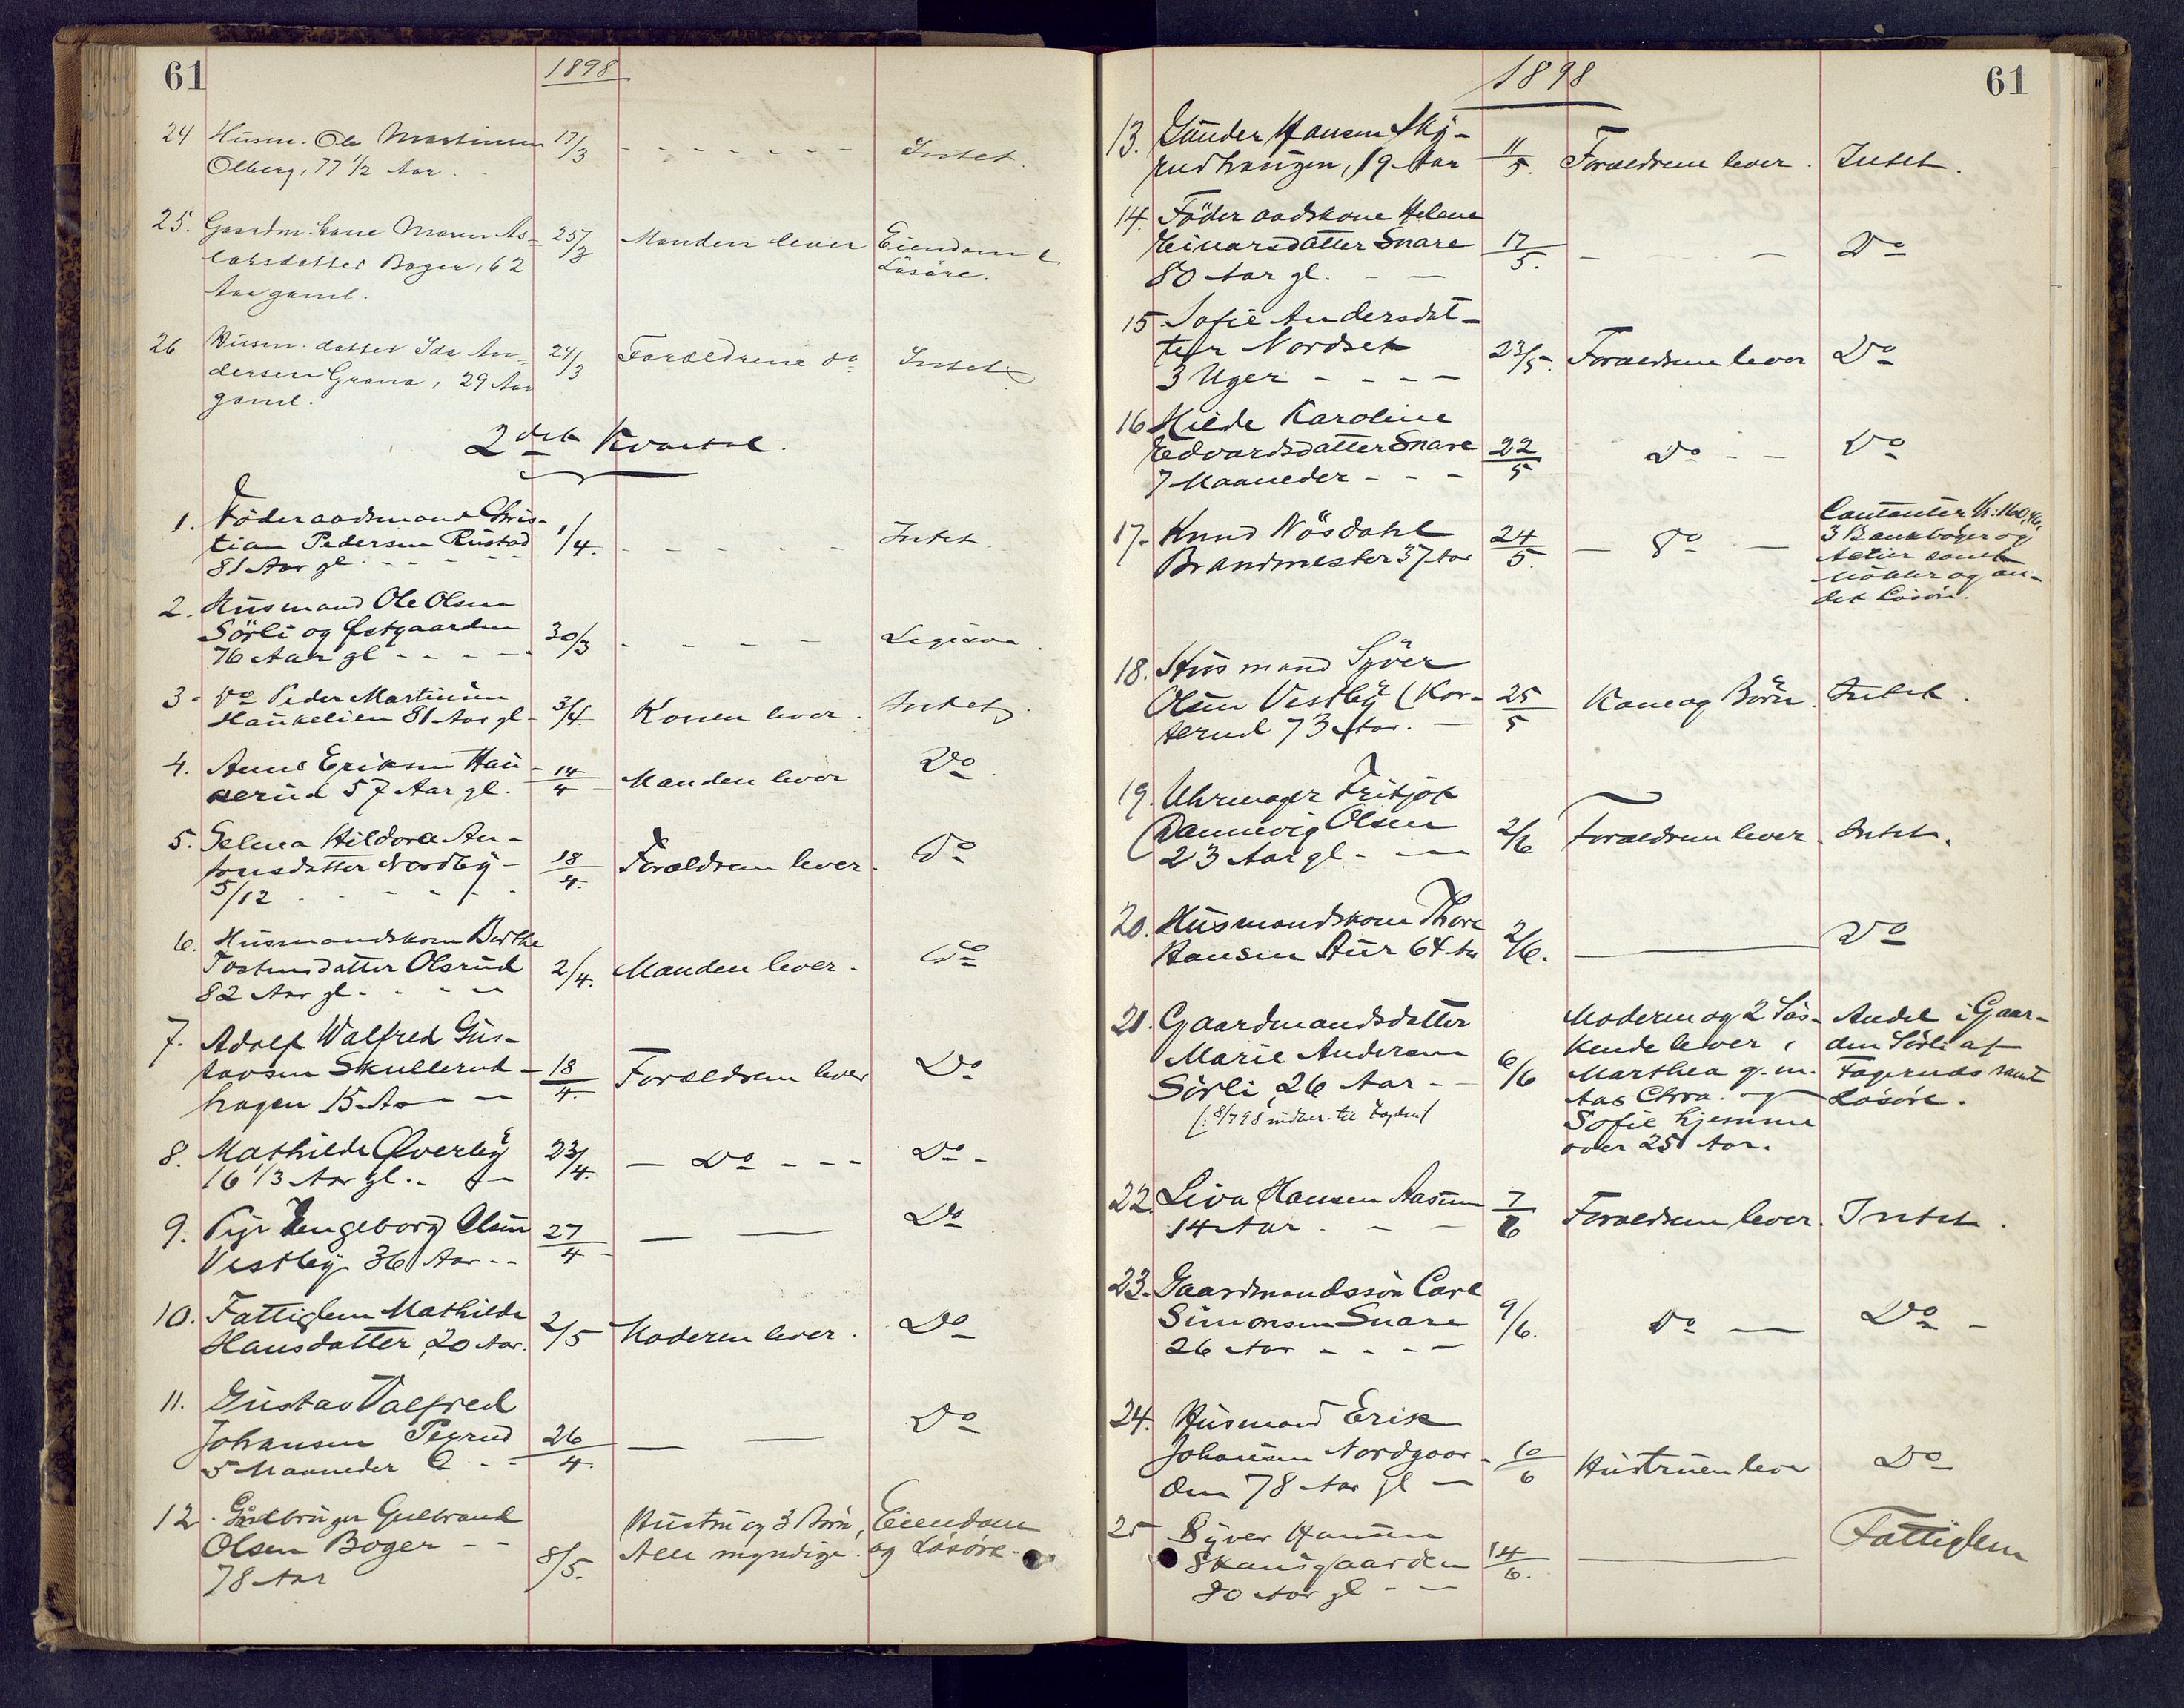 61
1898
24 Husm. Ole Martinsen 17/3 - - - - - - - Intet.
Olberg, 77 1/2 Aar.
25. Gaardm. kone Maren As- 25/3 Manden lever Eiendom &
laksdatter Boger, 62 Løsøre.
Aar gaml.
26 Husm. datter Ida An- 24/3 Forældrene do Intet
dersen Grana, 29 Aar
gaml.
2det Kvartal.
1. Föderaadsmand Chris- 1/4. - - - - - Intet.
tian Pedersen Rustad
81 Aar gl. - - - -
2. Husmand Ole Olsen
Sörli og Østgaarden 30/3 - - - -
76 Aar gl - - - -
3. Do Peder Martinsen 3/4 Konen lever. Intet.
Haukelien 81 Aar gl -
4. Anne Eriksen Hau- 14/4 Manden lever Do.
serud 57 Aar gl.
5. Selma Hildora An-
tonsdatter Nordby - 18/4. Forældrene lever. Do
5/12 - - - -
6. Husmandskone Berthe
Tostensdatter Olsrud 2/4. Manden lever. Do
82 Aar gl - - - -
7. Adolf Walfred Gus-
tavsen Skullerud- 18/4. Forældrene lever Do
hagen 15 Aar - -
8. Mathilde Øverby 23/4. - Do - - - Do -
16 1/3 Aar gl. - -
9. Pige Engeborg Olsen 27/4 - - Do
Vestby 36 Aar - -
10. Fattiglem Mathilde 2/5 Moderen lever. Do
Hansdatter, 20 Aar.
11. Gustav Valfred
Johansen Pegrud 26/4. - - Do
5 Maaneder - -
12. Gulbrand Hustru og 3 Børn, Eiendom
Olsen Boger - - 8/5. Alle myndige. og Løsøre.
78 Aar
1898
61
13. Gunder Hansen Sky- 11/5. Forældrene lever. Intet.
rudhaugen, 19 Aar
14. Föderaadskone Helene
Einarsdatter Snare 17/5. - - - Do
80 Aar gl. - -
15. Sofie Andersdat-
ter Nordset 23/5. Forældrene lever Do
3 Uger - - - -
16 Hilda Karoline
Edvardsdatter Snare 22/5 Do - - Do
7 Maaneder - - -
17. Knud Nösdahl 24/5. - Do - Contanter Kr: 160,46,
Brandmester 37 Aar 3 Bankbøger og
Actier samt
Möbler og an-
det Løsøre.
18. Husmand Syver
Olsen Vestby (Kor- 25/5 Kone og Börn. Intet.
terud 73 Aar. -
19. Uhrmager Fritjof
Dannevig Olsen 2/6 Forældrene lever. Intet.
23 Aar gl - -
20. Husmandskone Thore 2/6. - Do
Hansen Aur 64 Aar
21. Gaardmandsdatter Moderen og 2 Søs- Andel i Gaar-
Marie Andersen 6/6 kende lever, den Sörli af
Sörli, 26 Aar - - Marthea g. m. Fagernæs samt
(: 8/7 98 indber. til Fogden) Aas Chra. og Løsøre.
Sofie hjemme
over 25 Aar.
22. Liva Hansen Aasum 7/6 Forældrene lever. Intet.
14 Aar - - -
23. Gaardmandssön Carl
Simonsen Snare 9/6. Do - Do -
26 Aar - - - -
24. Husmand Erik
Johansen Nordgaar- 10/6 Hustruen lever Do
den 78 Aar gl -
25 Syver Hansen Fattiglem
Skansgaarden 14/6. -
80 Aar gl - -